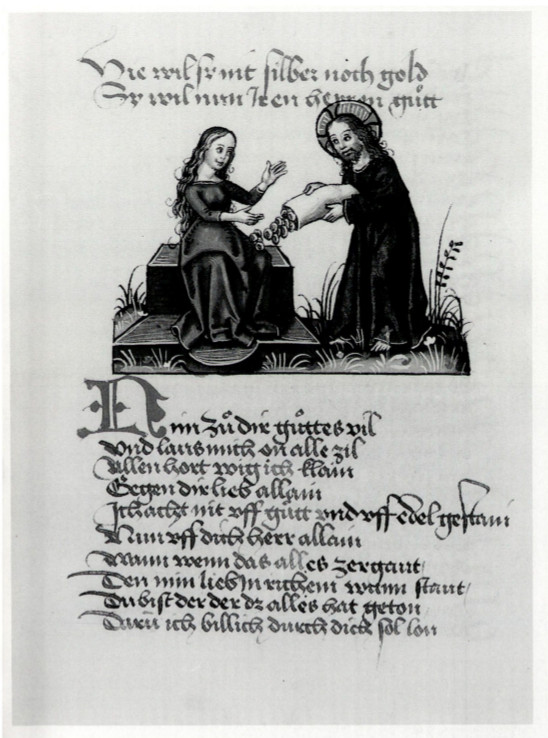 Hie wil sy nit silber noch gold
Sy wil nun Iren herren gůtt
Nim zů dir gůttes vil
vnd laus mich on alle zil
Allen hort wig ich klain
Gegen dir lieb allain
Ich acht nit vff gůtt vnd vff edel gestain
Nun vff dich herr allain
Wann wenn das alles zergaut
Den min lieb In richem wunn staut
Du bist der der dz alles hat geton
Darū ich billich durch dich sol lon